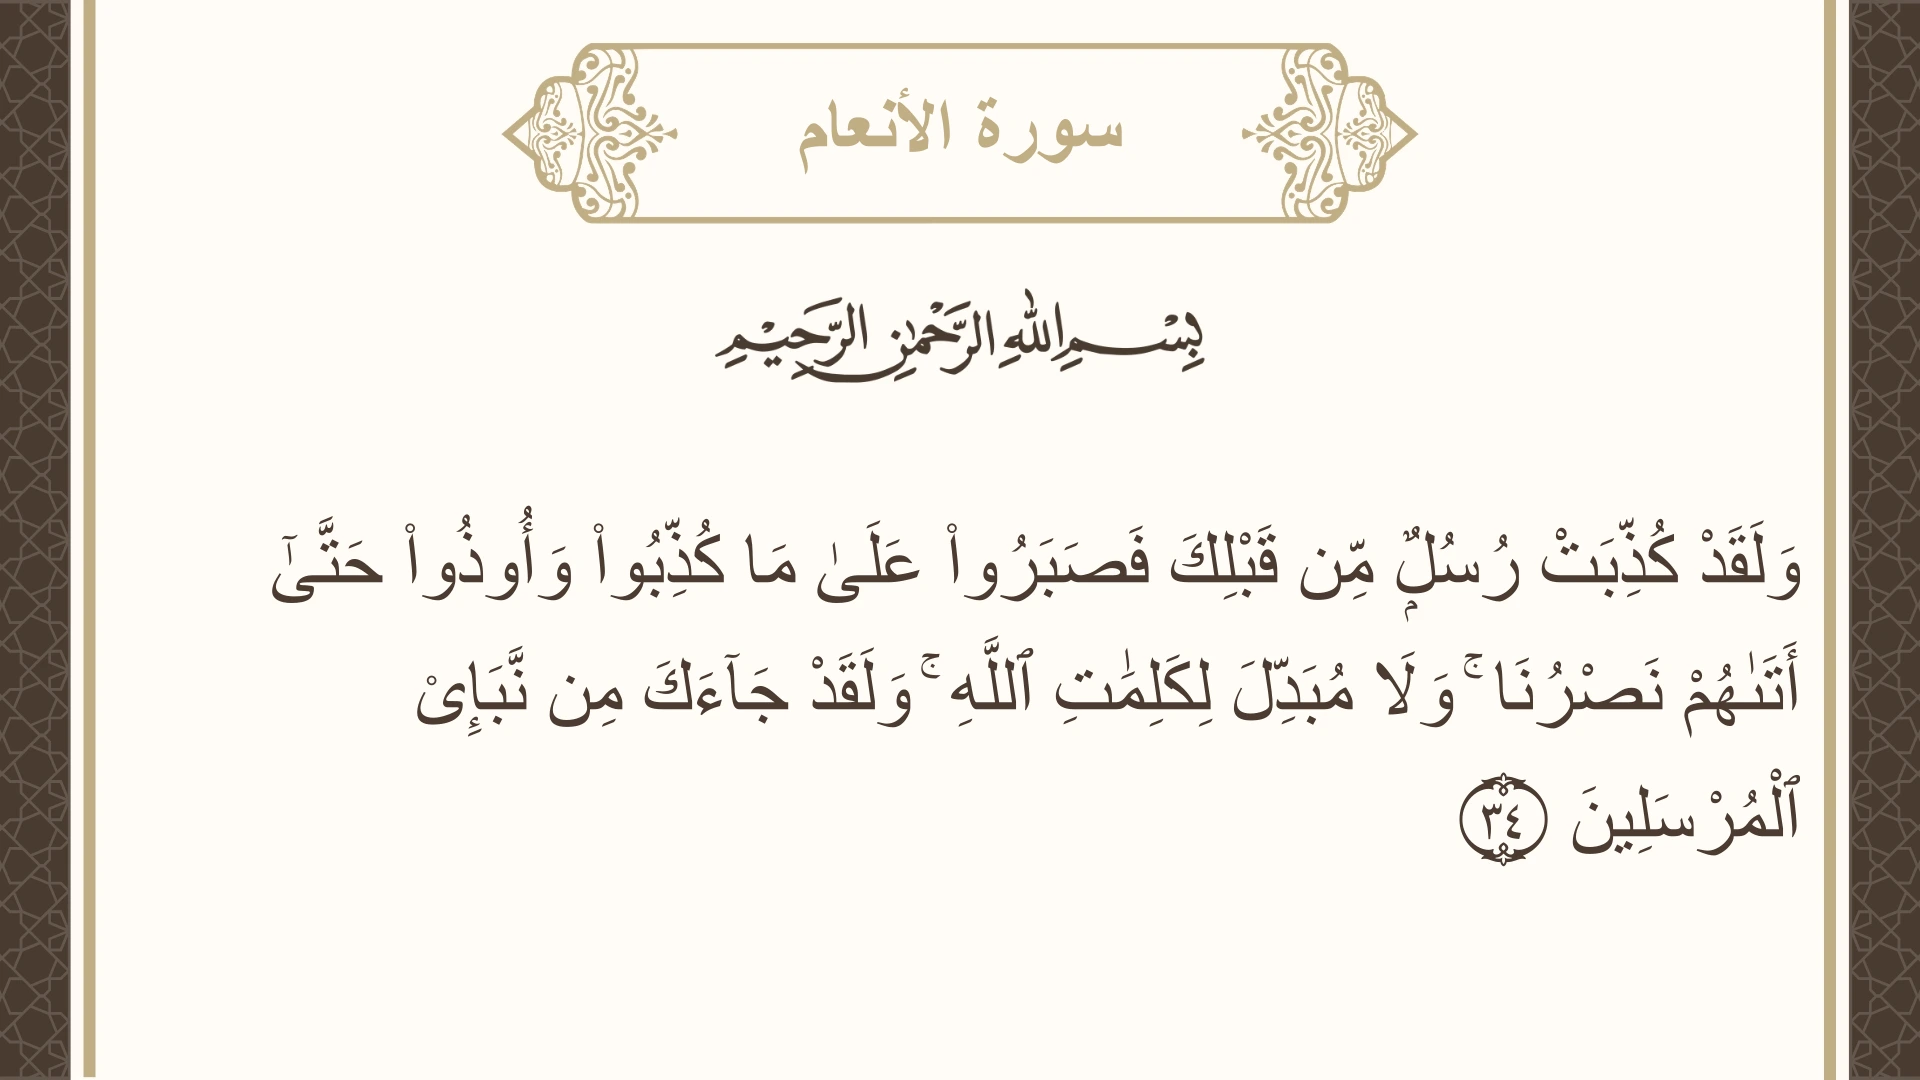 سورة الأنعام
بِسْمِ اللهِ الرَّحْمٰنِ الرَّحِيْمِ
وَلَقَدْ كُذِّبَتْ رُسُلٌۭ مِّن قَبْلِكَ فَصَبَرُوا۟ عَلَىٰ مَا كُذِّبُوا۟ وَأُوذُوا۟ حَتَّىٰٓ
أَتَىٰهُمْ نَصْرُنَا ۚ وَلَا مُبَدِّلَ لِكَلِمَٰتِ ٱللَّهِ ۚ وَلَقَدْ جَآءَكَ مِن نَّبَإِى۟
ٱلْمُرْسَلِينَ ٣٤